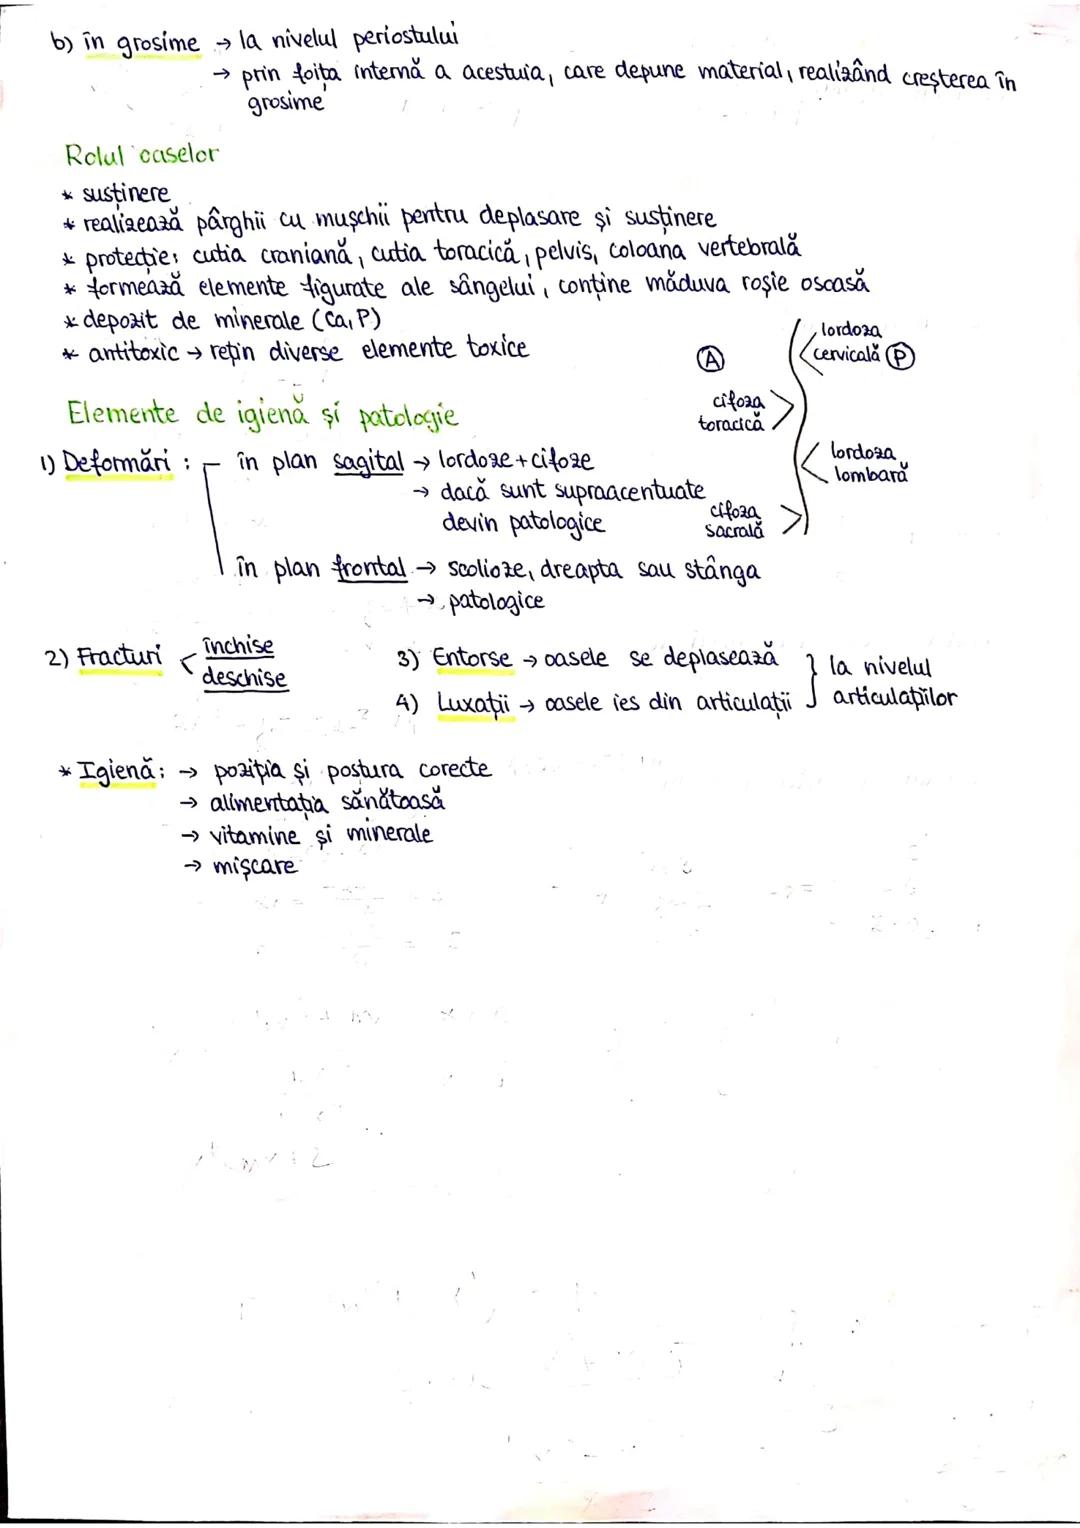 b) în grosime → la nivelul periostului
→ prin foița internă a acestuia, care depune material, realizând creșterea în
grosime
Rolul oaselor
* susținere
* realizează pârghii cu mușchii pentru deplasare și susținere
* protecție: cutia craniană, cutia toracică, pelvis, coloana vertebrală
* formează elemente figurate ale sângelui, conține măduva roșie osoasă
* depozit de minerale (Ca, P)
* antitoxic → rețin diverse elemente toxice
lordoza
cervicală (P)
(A)
cifoza
toracică
lordoza
lombară
cifoza
sacrală
Elemente de igienă și patologie
1) Deformări : în plan sagital → lordoze + cifoze
→ dacă sunt supraaccentuate
devin patologice
în plan frontal → scolioze, dreapta sau stânga
→ patologice
2) Fracturi < închise
deschise
3) Entorse → oasele se deplasează
4) Luxații → oasele ies din articulații
} la nivelul
articulațiilor
* Igienă: → poziția și postura corecte
→ alimentația sănătoasă
→ vitamine și minerale
→ mișcare